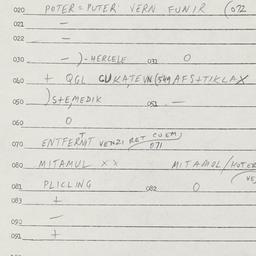 020 POTER = PUTER VERN FUNIR (022
021 —
022 —
030 — )-HERCELE 031 O
040 + QGL
050 )STEMEDIK 051 —
060 O
070 ENTFERNT VENZI RET COEM) 071
080 MITAMUL XX MITAMUL/HOTER
081 PLICLING 082 O
083 +
090 —
091 +